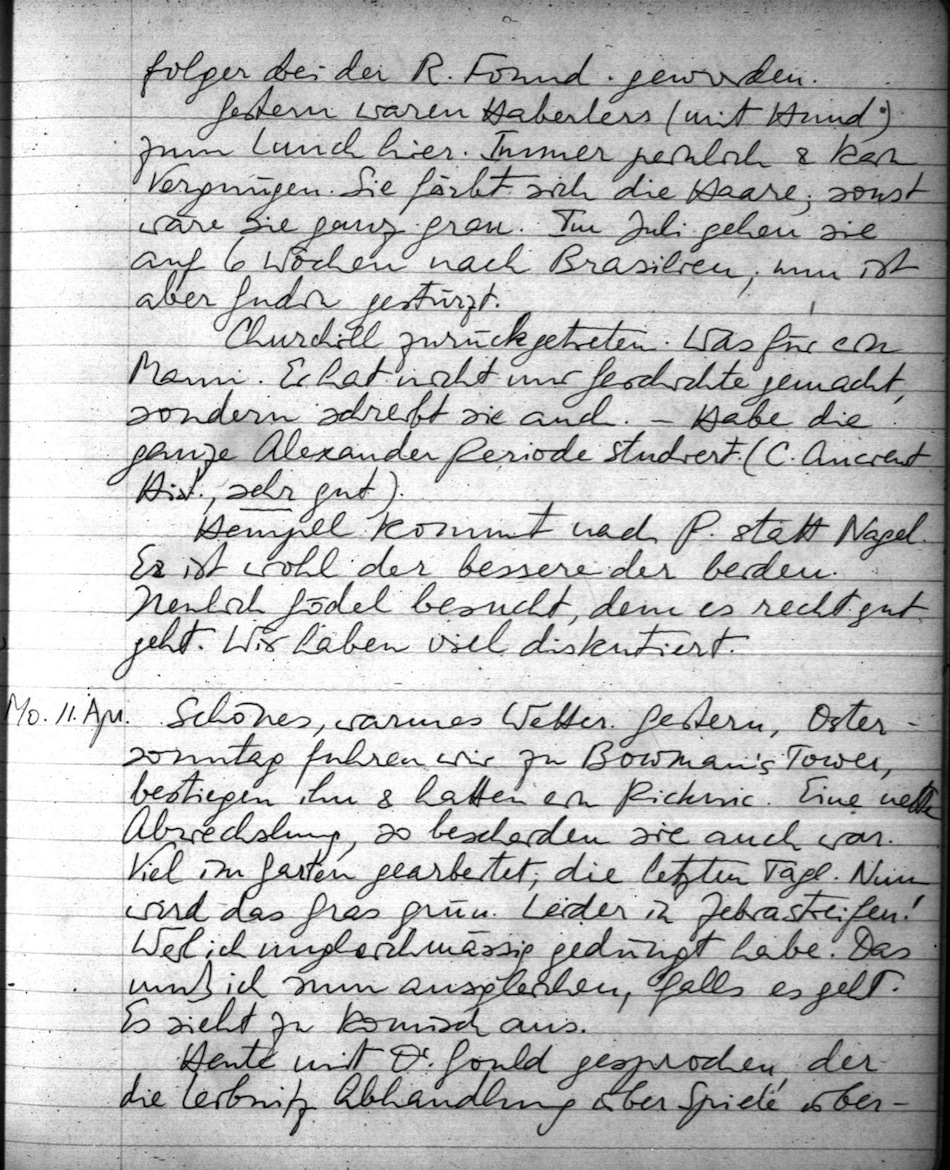 folger bei der R. Found. geworden.
Gestern waren Haberlers (mit Hund)
zum Lunch hier. Immer peinlich & kein
Vergnügen. Sie färbt sich die Haare, sonst
wäre sie ganz grau. Im Juli gehen sie
auf 6 Wochen nach Brasilien, nun ist
aber Gudin gestürzt.
Churchill zurückgetreten. Was für ein
Mann. Er hat nicht nur Geschichte gemacht,
sondern schreibt sie auch. – Habe die
ganze Alexander Periode studiert. (C. Ancient
Hist., sehr gut).
Hempel kommt nach P. statt Nagel.
Er ist wohl der bessere der beiden.
Neulich Gödel besucht, dem es recht gut
geht. Wir haben viel diskutiert.
Mo. 11. Apr. Schönes, warmes Wetter. Gestern, Oster-
sonntag fuhren wir zu Bowman's Tower,
bestiegen ihn & hatten ein Picknic. Eine nette
Abwechslung, so bescheiden sie auch war.
Viel im Garten gearbeitet, die letzten Tage. Nun
wird das Gras grün. Leider in Zebrastreifen!
Weil ich ungleichmässig gedüngt habe. Das
muß ich nun ausgleichen, falls es geht.
Es sieht zu komisch aus.
Heute mit Dr. Gould gesprochen, der
die Leibnitz Abhandlung über Spiele über-